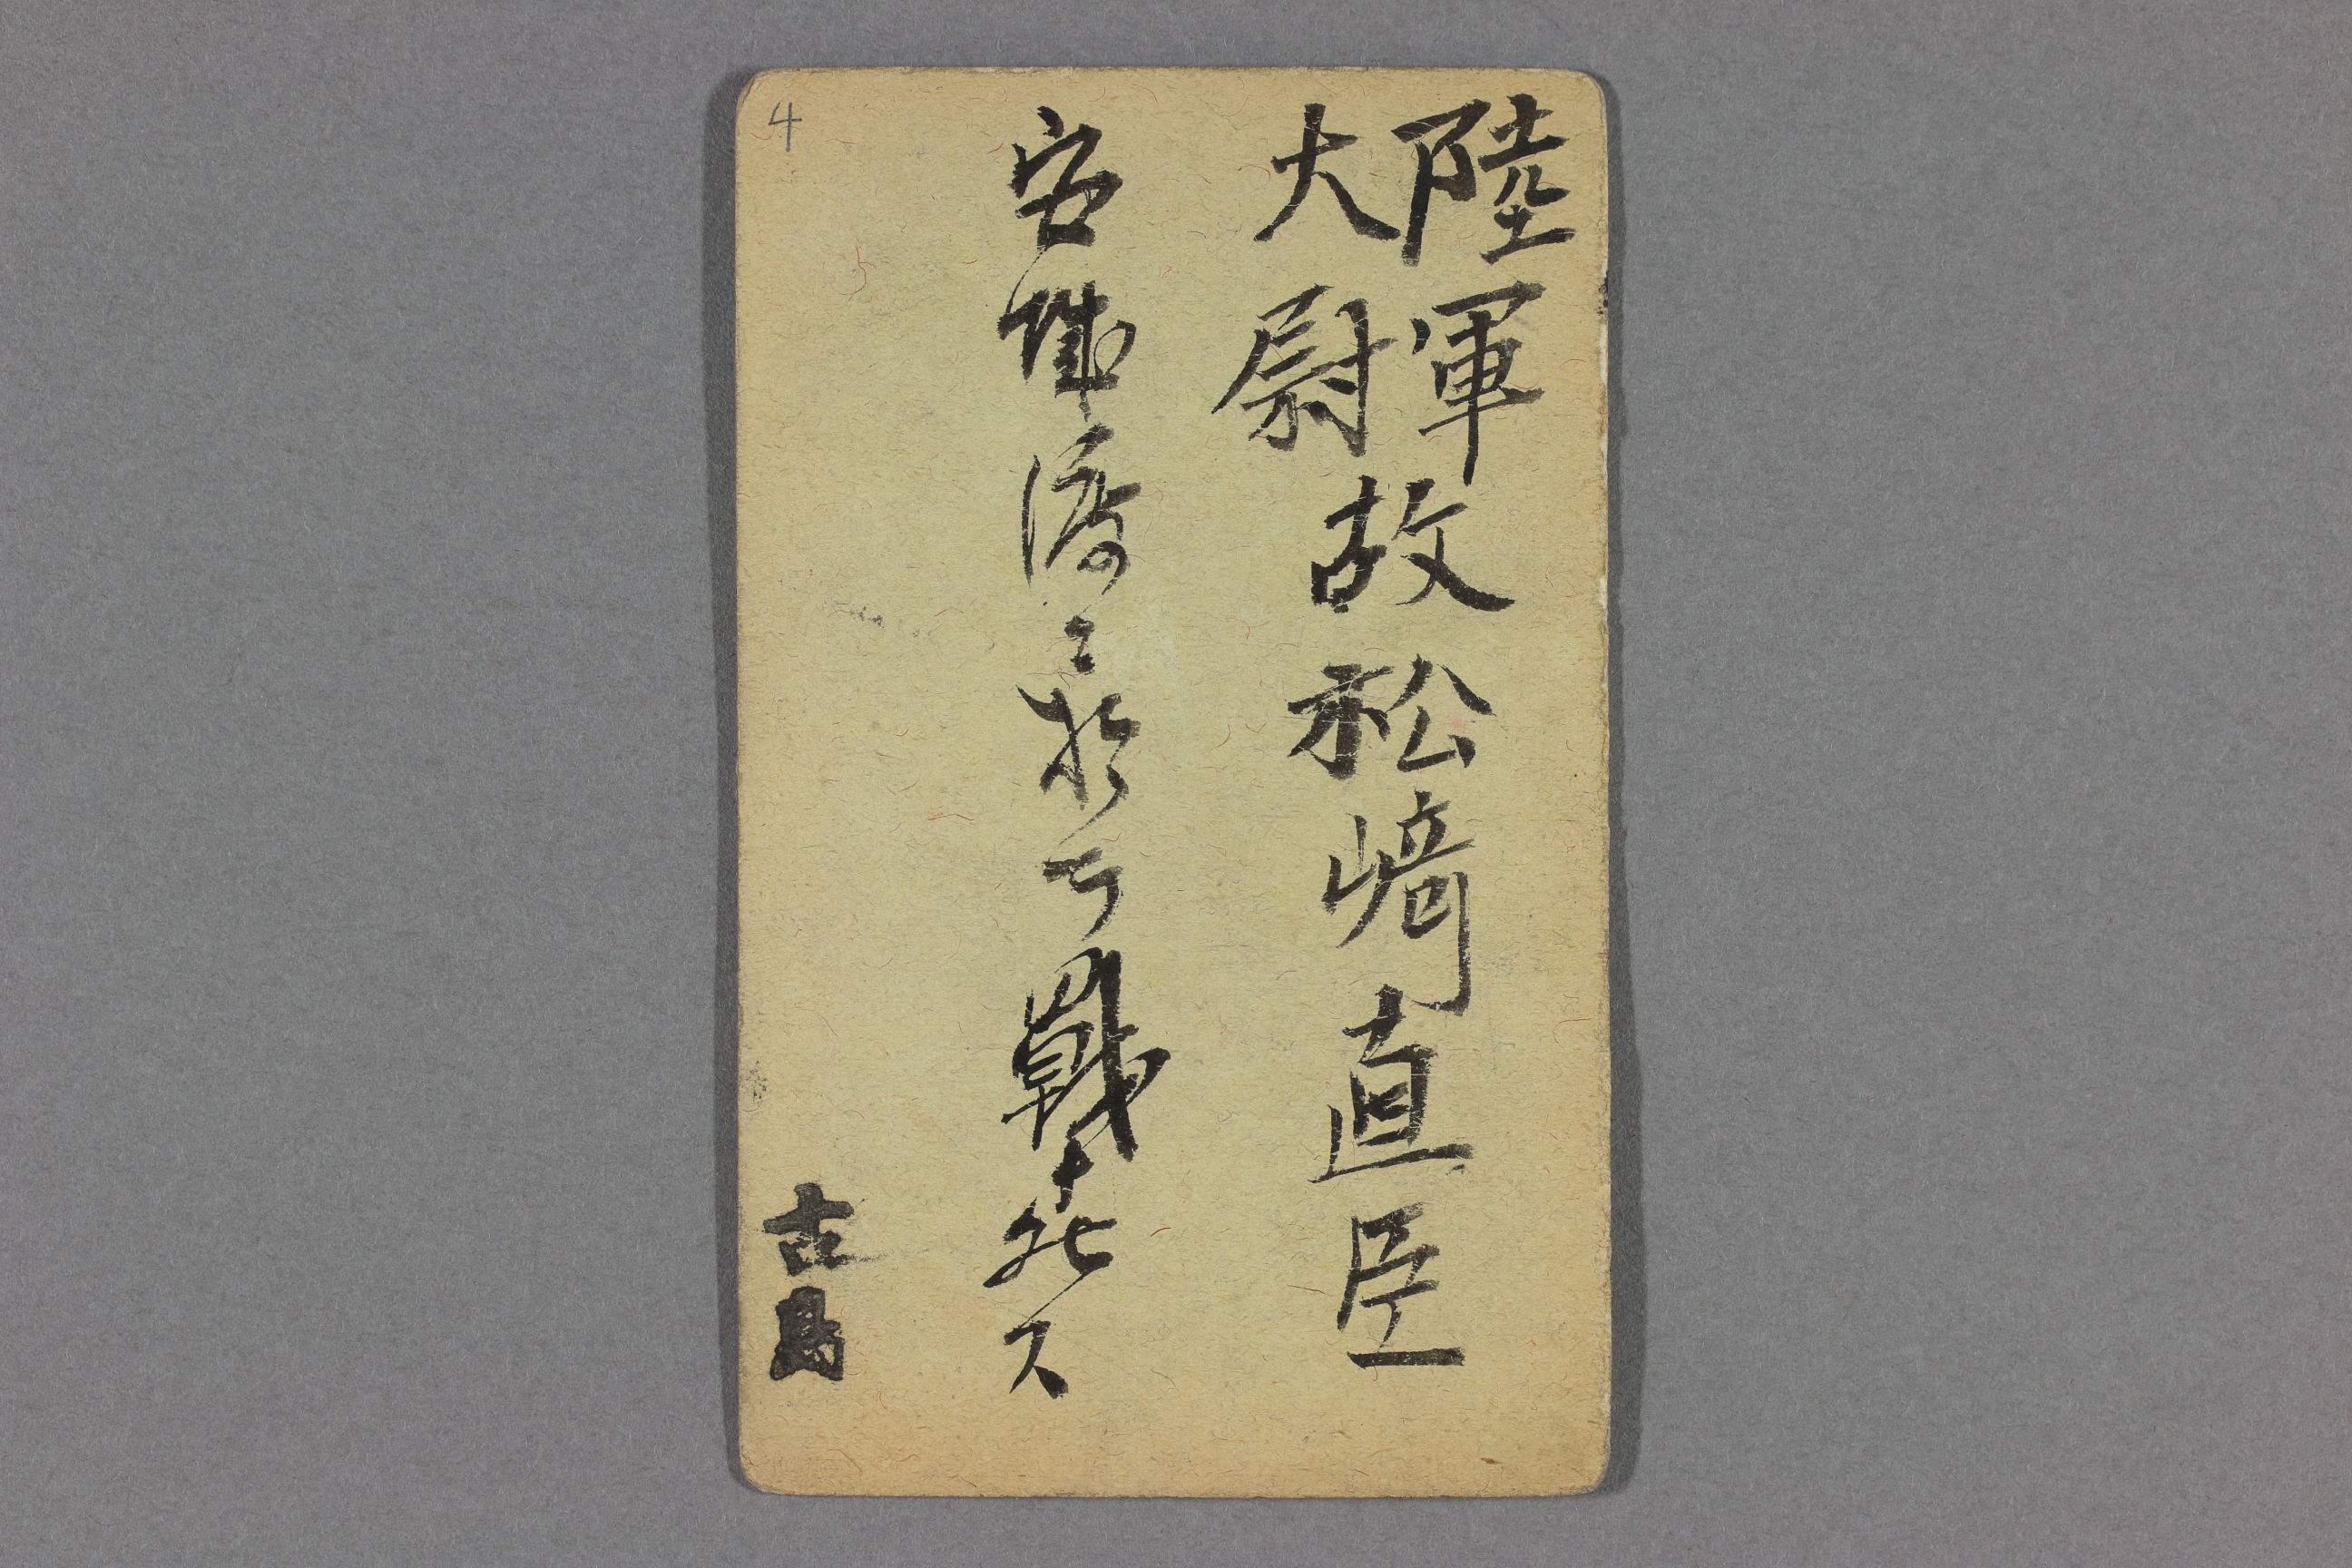 陸軍
大尉
故松﨑直臣
安城渡ニ於テ戰死ス
古島
4